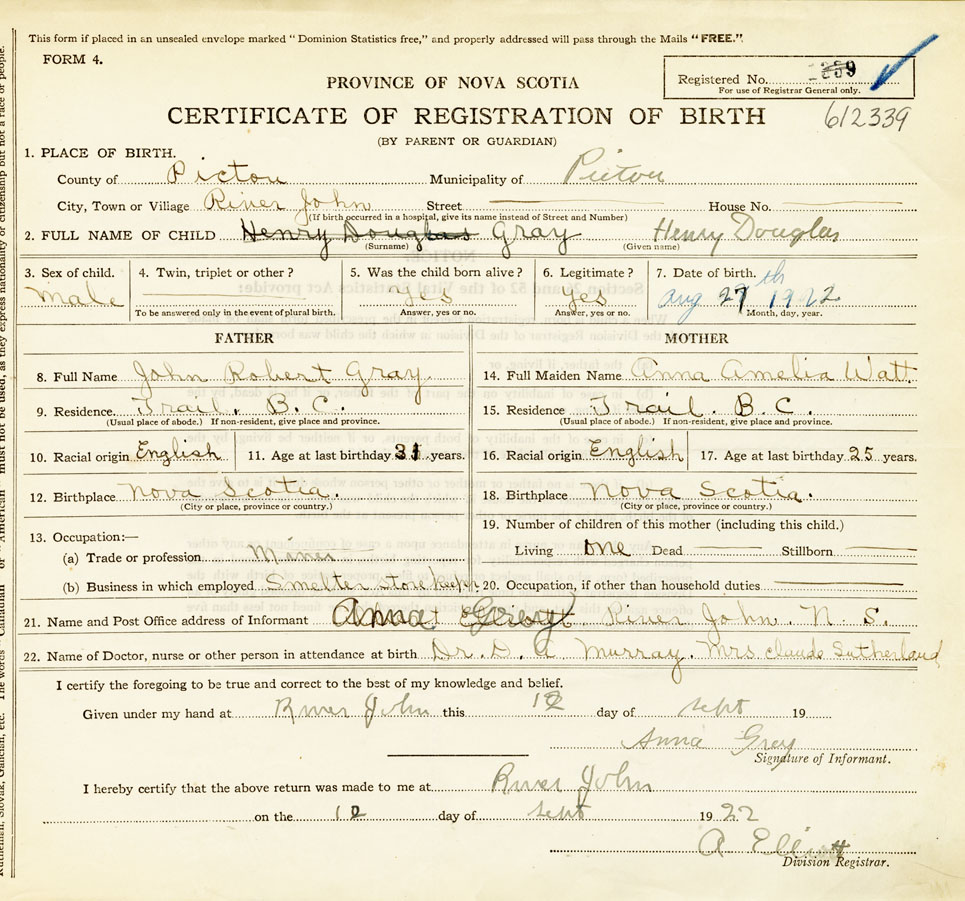 This form if placed in an unsealed envelope marked "Dominion Statistics free," and properly addressed will pass through the Mails "FREE."
FORM 4.
PROVINCE OF NOVA SCOTIA
Registered No.
For use of Registrar General only.
CERTIFICATE OF REGISTRATION OF BIRTH
612339
(BY PARENT OR GUARDIAN)
1. PLACE OF BIRTH.
County of Pictou Municipality of Pictou
City, Town or Village River John Street House No.
(If birth occurred in a hospital, give its name instead of Street and Number)
2. FULL NAME OF CHILD Henry Douglas Gray Henry Douglas
(Surname) (Given name)
3. Sex of child. 4. Twin, triplet or other? 5. Was the child born alive? 6. Legitimate? 7. Date of birth.
male yes yes Aug 27th 1922
To be answered only in the event of plural birth. Answer, yes or no. Answer, yes or no. Month, day, year.
FATHER MOTHER
8. Full Name John Robert Gray 14. Full Maiden Name Anna Amelia Watt
9. Residence Trail. B. C. 15. Residence Trail. B. C.
(Usual place of abode.) If non-resident, give place and province. (Usual place of abode.) If non-resident, give place and province.
10. Racial origin English 11. Age at last birthday 31 years. 16. Racial origin English 17. Age at last birthday 25 years.
12. Birthplace Nova Scotia. 18. Birthplace Nova Scotia.
(City or place, province or country.) (City or place, province or country.)
13. Occupation:— 19. Number of children of this mother (including this child.)
(a) Trade or profession Miner Living one Dead Stillborn
(b) Business in which employed Smelter storekeeper 20. Occupation, if other than household duties
21. Name and Post Office address of Informant Anna River John. N. S.
22. Name of Doctor, nurse or other person in attendance at birth Dr. D. A Murray. Mrs claude Sutherland
I certify the foregoing to be true and correct to the best of my knowledge and belief.
Given under my hand at River John this 12 day of sept 19
Anna Grey
Signature of Informant.
I hereby certify that the above return was made to me at River John
on the 12 day of sept 1922
A Elliott
Division Registrar.